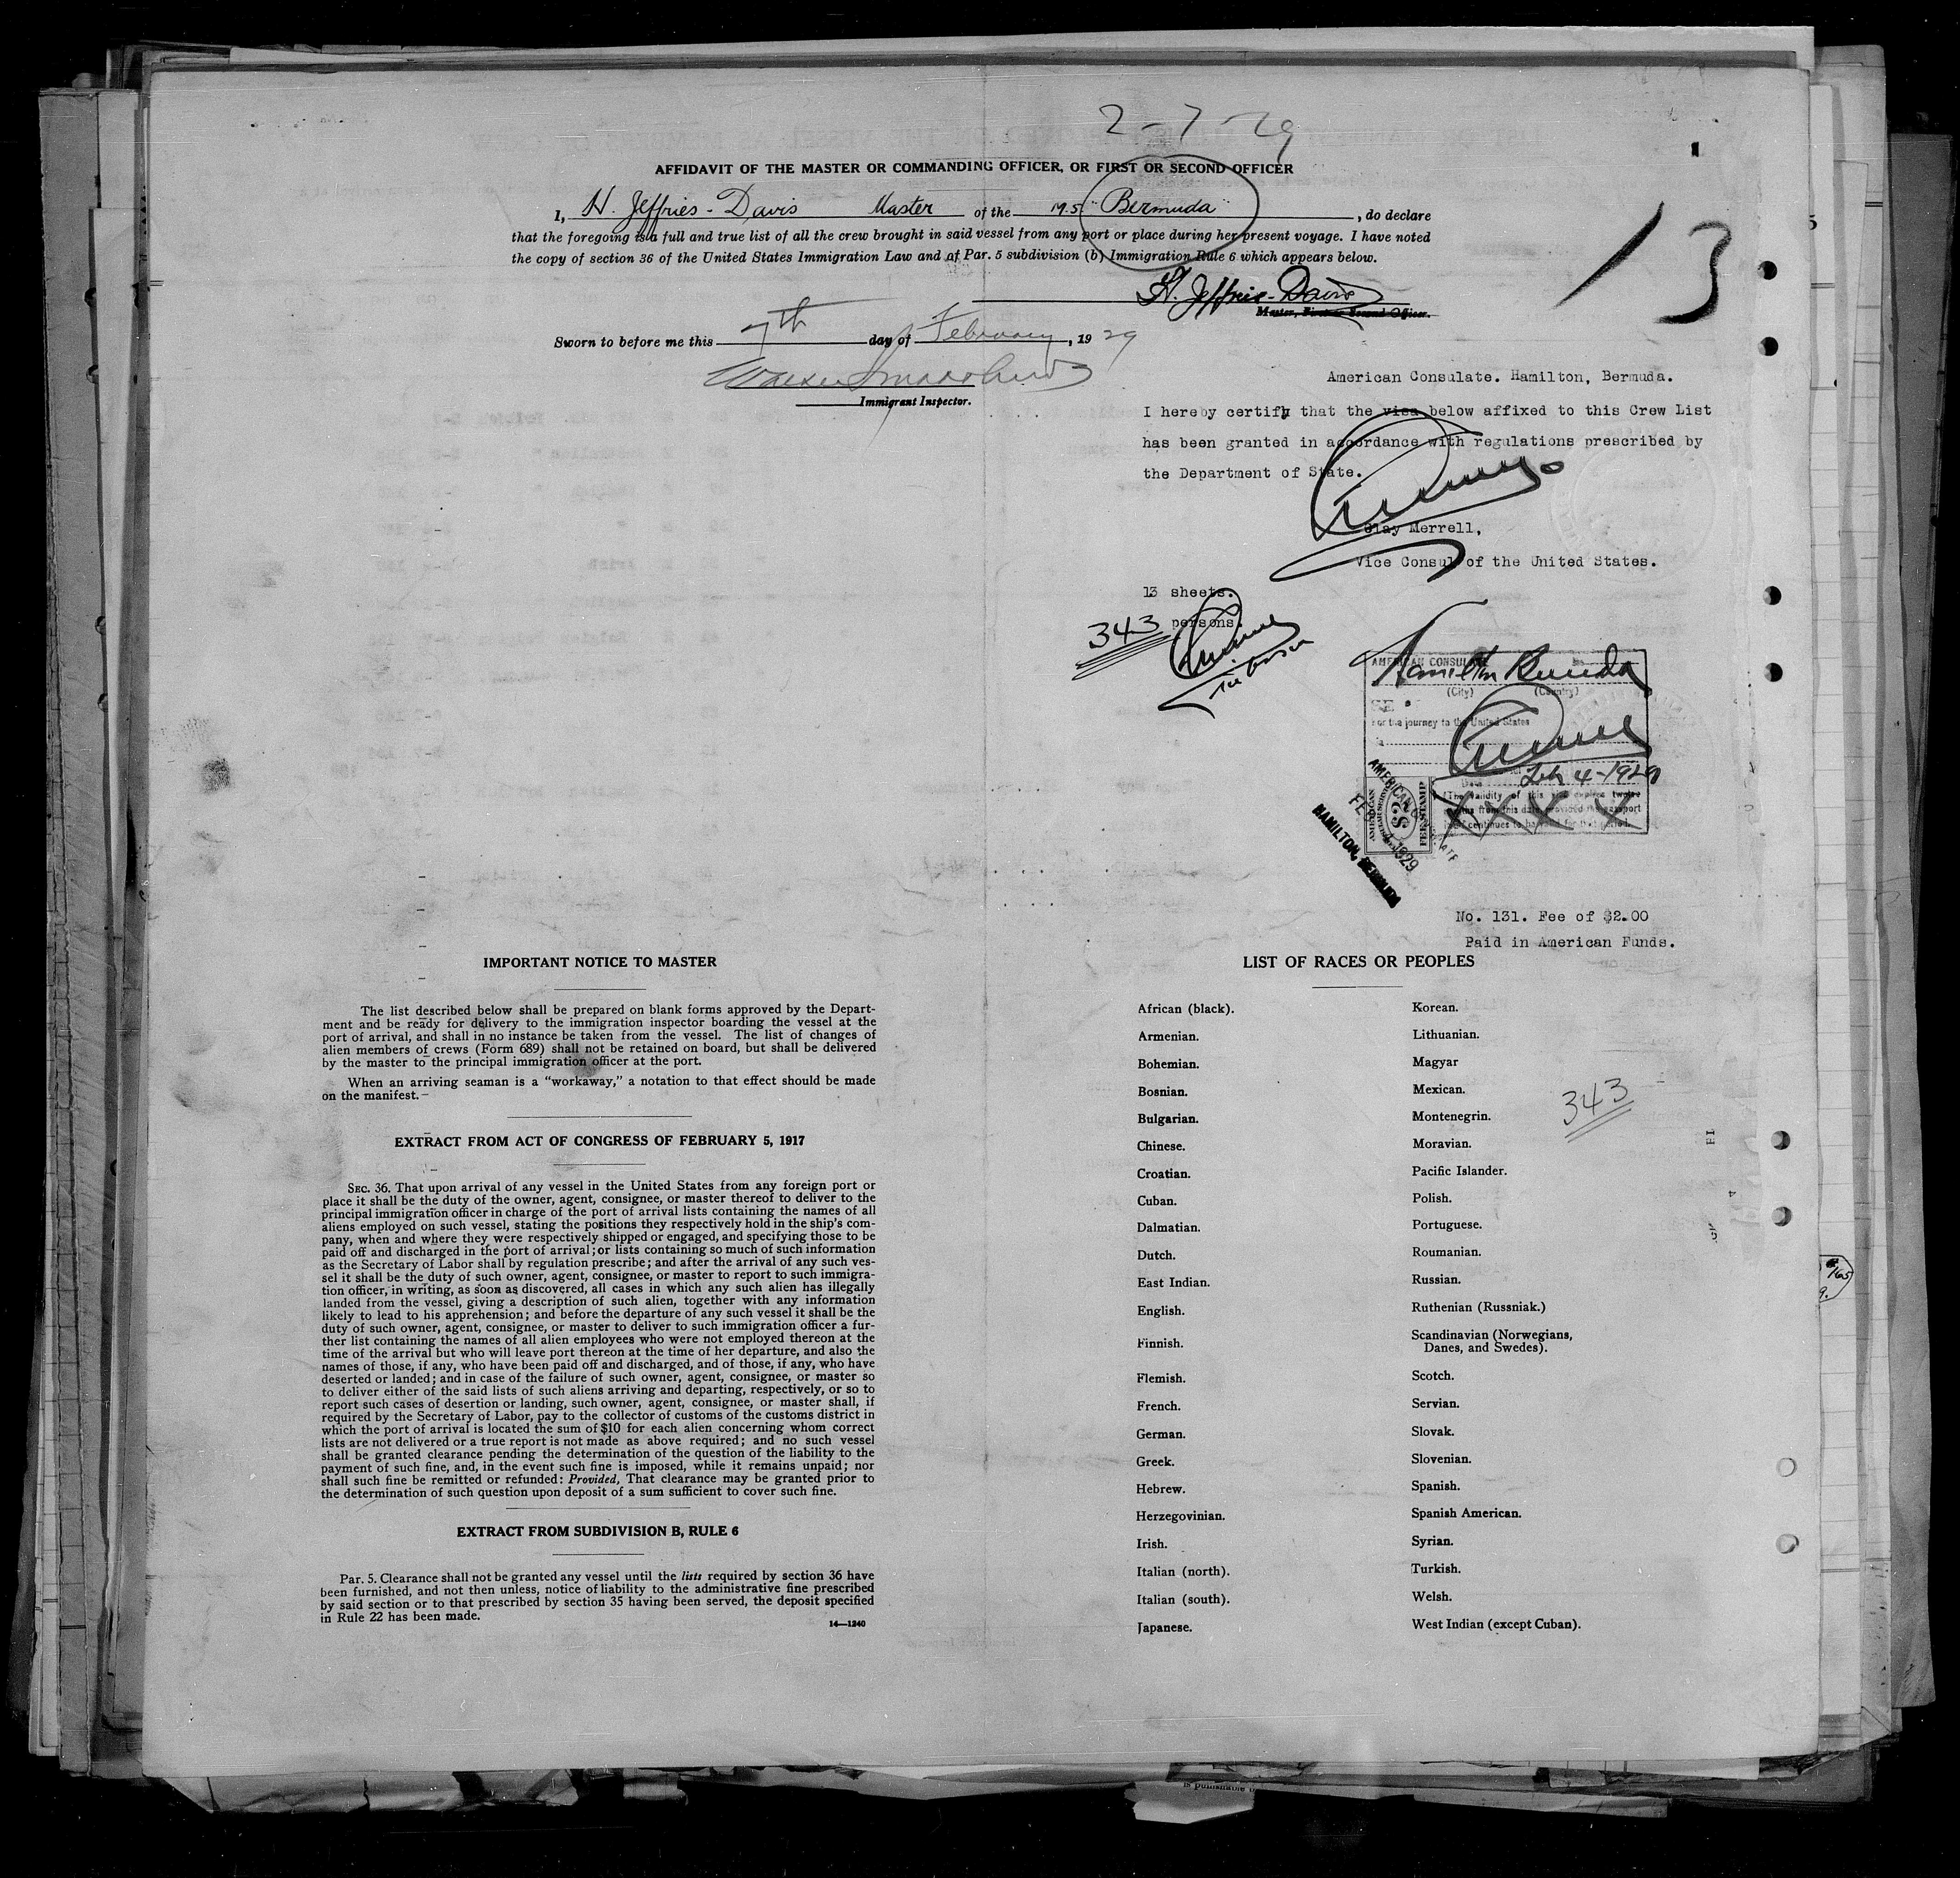 2-7-29
AFFIDAVIT OF THE MASTER OR COMMANDING OFFICER, OR FIRST OR SECOND OFFICER
I, H. Jeffries-Davis Master of the "Bermuda", do declare
that the foregoing is a full and true list of all the crew brought in said vessel from any port or place during her present voyage. I have noted
the copy of section 36 of the United States Immigration Law and of Par. 5 subdivision (b) Immigration Rule 6 which appears below.
13
H. Jeffries-Davis
Master, First or Second Officer.
Sworn to before me this 7th day of February, 1929
Immigrant Inspector.
American Consulate. Hamilton, Bermuda.
I hereby certify that the visa below affixed to this Crew List
has been granted in accordance with regulations prescribed by
the Department of State.
Clay Merrell,
Vice Consul of the United States.
13 sheets.
343 persons.
AMERICAN CONSULATE
Hamilton Bermuda
(City) (Country)
For the journey to the United States
Date Feb 4-1929
The validity of this visa expires twelve
months from this date provided the passport
continues to be valid for that period.
XXXX
AMERICAN
FEE STAMP
FEB 4 1929
HAMILTON, BERMUDA
No. 131. Fee of $2.00
Paid in American Funds.
IMPORTANT NOTICE TO MASTER
The list described below shall be prepared on blank forms approved by the Depart-
ment and be ready for delivery to the immigration inspector boarding the vessel at the
port of arrival, and shall in no instance be taken from the vessel. The list of changes of
alien members of crews (Form 689) shall not be retained on board, but shall be delivered
by the master to the principal immigration officer at the port.
When an arriving seaman is a "workaway," a notation to that effect should be made
on the manifest.
EXTRACT FROM ACT OF CONGRESS OF FEBRUARY 5, 1917
SEC. 36. That upon arrival of any vessel in the United States from any foreign port or
place it shall be the duty of the owner, agent, consignee, or master thereof to deliver to the
principal immigration officer in charge of the port of arrival lists containing the names of all
aliens employed on such vessel, stating the positions they respectively hold in the ship's com-
pany, when and where they were respectively shipped or engaged, and specifying those to be
paid off and discharged in the port of arrival; or lists containing so much of such information
as the Secretary of Labor shall by regulation prescribe; and after the arrival of any such ves-
sel it shall be the duty of such owner, agent, consignee, or master to report to such immigra-
tion officer, in writing, as soon as discovered, all cases in which any such alien has illegally
landed from the vessel, giving a description of such alien, together with any information
likely to lead to his apprehension; and before the departure of any such vessel it shall be the
duty of such owner, agent, consignee, or master to deliver to such immigration officer a fur-
ther list containing the names of all alien employees who were not employed thereon at the
time of the arrival but who will leave port thereon at the time of her departure, and also the
names of those, if any, who have been paid off and discharged, and of those, if any, who have
deserted or landed; and in case of the failure of such owner, agent, consignee, or master so
to deliver either of the said lists of such aliens arriving and departing, respectively, or so to
report such cases of desertion or landing, such owner, agent, consignee, or master shall, if
required by the Secretary of Labor, pay to the collector of customs of the customs district in
which the port of arrival is located the sum of $10 for each alien concerning whom correct
lists are not delivered or a true report is not made as above required; and no such vessel
shall be granted clearance pending the determination of the question of the liability to the
payment of such fine, and, in the event such fine is imposed, while it remains unpaid; nor
shall such fine be remitted or refunded: Provided, That clearance may be granted prior to
the determination of such question upon deposit of a sum sufficient to cover such fine.
EXTRACT FROM SUBDIVISION B, RULE 6
Par. 5. Clearance shall not be granted any vessel until the lists required by section 36 have
been furnished, and not then unless, notice of liability to the administrative fine prescribed
by said section or to that prescribed by section 35 having been served, the deposit specified
in Rule 22 has been made.
14—1240
LIST OF RACES OR PEOPLES
African (black).
Armenian.
Bohemian.
Bosnian.
Bulgarian.
Chinese.
Croatian.
Cuban.
Dalmatian.
Dutch.
East Indian.
English.
Finnish.
Flemish.
French.
German.
Greek.
Hebrew.
Herzegovinian.
Irish.
Italian (north).
Italian (south).
Japanese.
Korean.
Lithuanian.
Magyar
Mexican.
Montenegrin.
Moravian.
Pacific Islander.
Polish.
Portuguese.
Roumanian.
Russian.
Ruthenian (Russniak.)
Scandinavian (Norwegians,
Danes, and Swedes).
Scotch.
Servian.
Slovak.
Slovenian.
Spanish.
Spanish American.
Syrian.
Turkish.
Welsh.
West Indian (except Cuban).
343